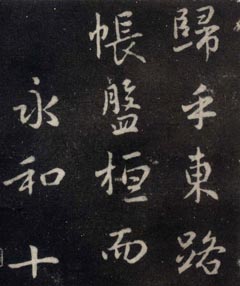 歸乎東路
悵盤桓而
永和十